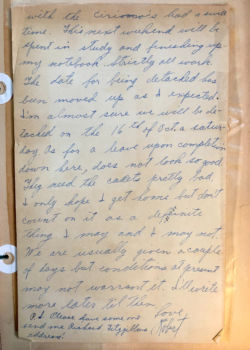 with the Cicenno's had a swell
time. This next weekend will be
spent in study and finishing up
my notebook strictly all work.
The date for being detached has
been moved up as I expected.
I'm almost sure we will be de-
tached on the 16th of Oct. a satur-
day. As for a leave upon completion
down here, does not look so good.
They need the cadets pretty bad,
I only hope I get some but don't
count on it as a definite
thing I may and I may not.
We are usually given a couple
of days but conditions at present
may not warrant it. I'll write
more later til then
Love,
Robert
P.S. Please have some one
send me Richard Fitzgibbons
address!